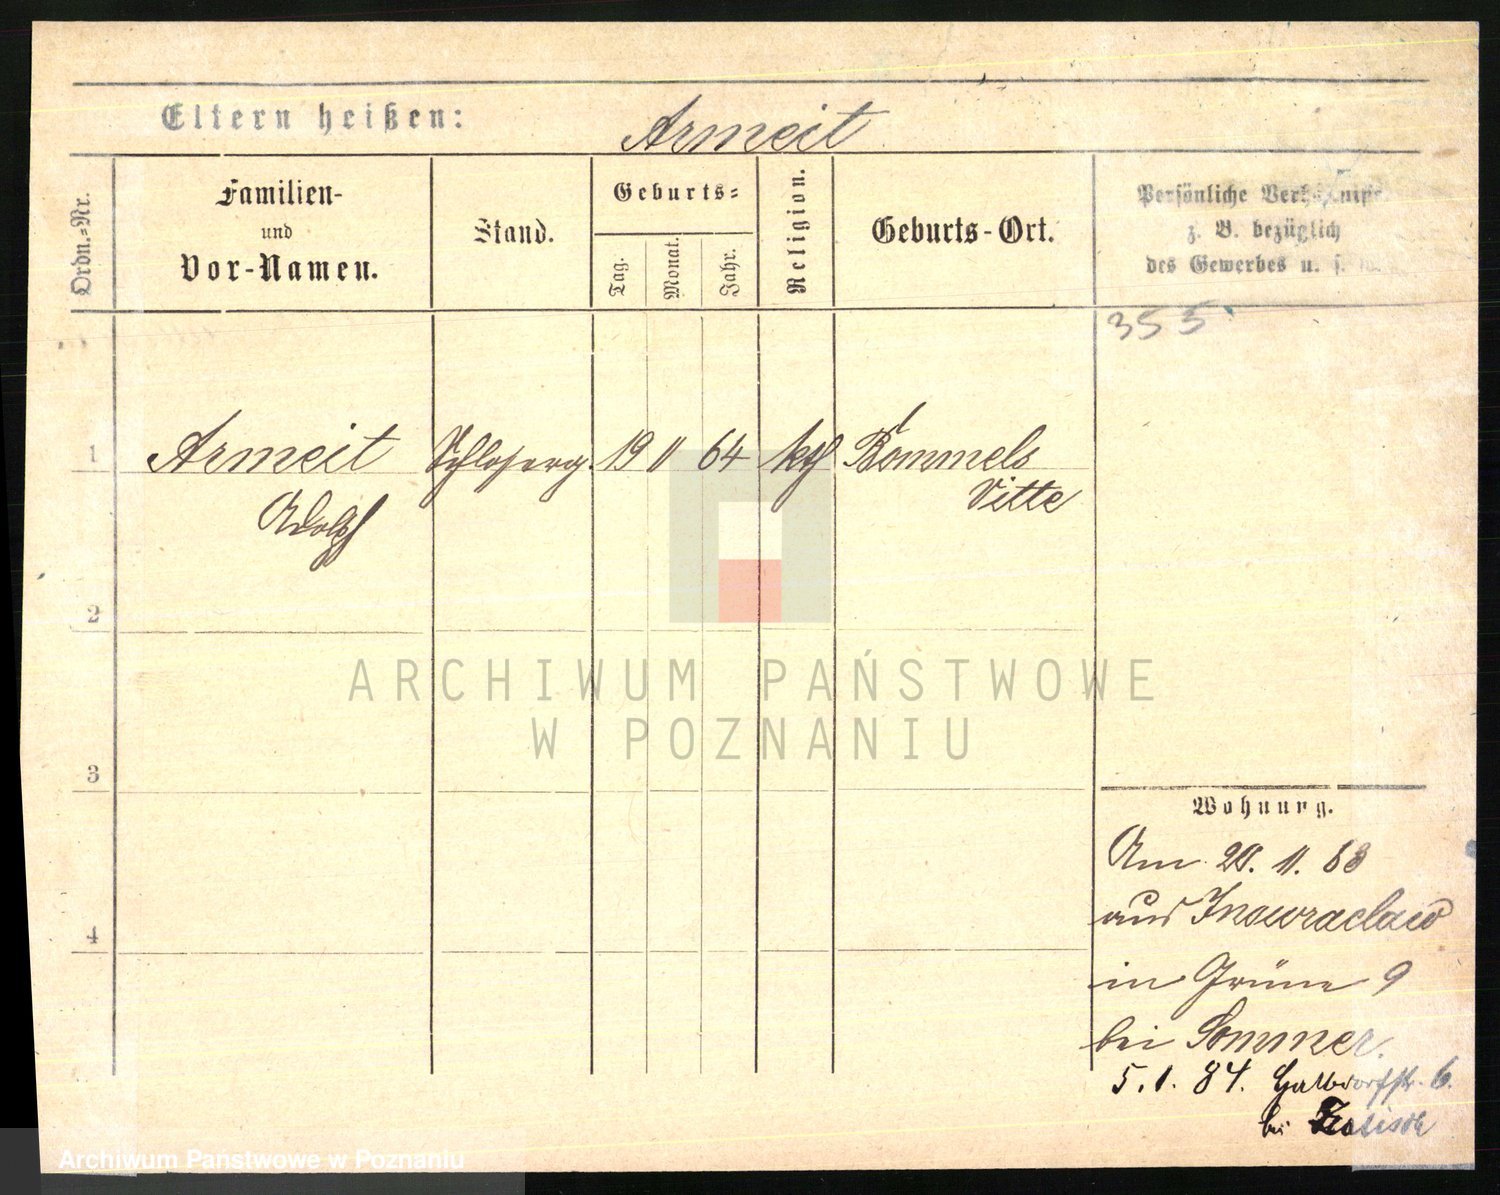 Eltern heißen: Armeit
Ordn.=Nr.
Familien-
und
Vor-Namen.
Stand.
Geburts=
Tag.
Monat.
Jahr.
Religion.
Geburts-Ort.
Persönliche Verhältnisse
z. B. bezüglich
des Gewerbes u. s. w.
355
1 Armeit Schlosserg. 19 11 64 kth Bommels
Vitte
Adolf
2
3
4
Wohnung.
Am 20. 11. 83
aus Inowraclaw
in Grüne 9
bei Sommer.
5.1.84. Halbdorfstr. 6.
bei
ARCHIWUM PAŃSTWOWE
W POZNANIU
Archiwum Państwowe w Poznaniu